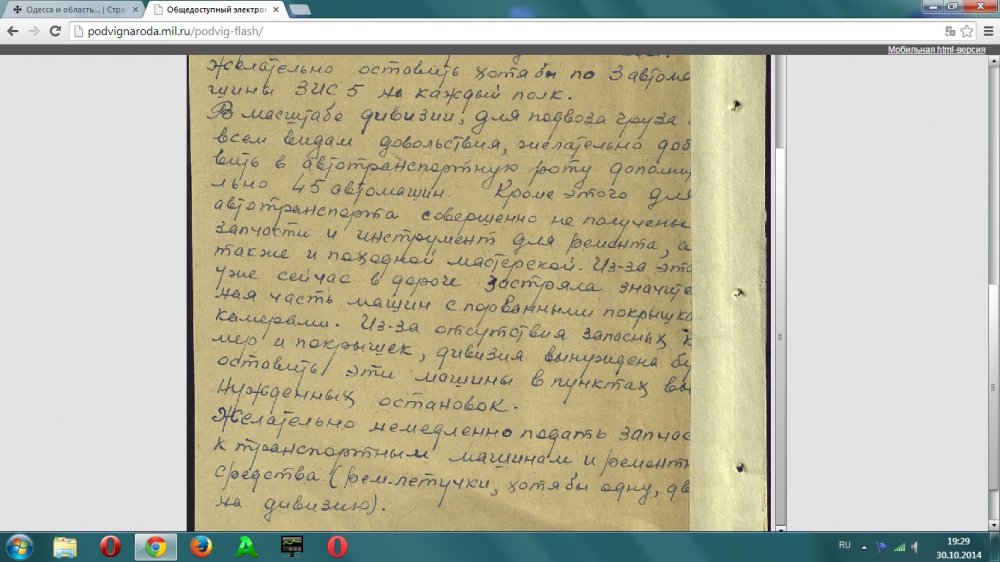 Одесса и область... | Стран
Общедоступный электрон
podvignaroda.mil.ru/podvig-flash/
Мобильная html-версия
желательно оставить хотя бы по 3 автома
шины ЗИС 5 на каждый полк.
В масштабе дивизии, для подвоза груза
всем видам довольствия, желательно доб
вить в автотранспортную роту дополни
льно 45 автомашин. Кроме этого для
автотранспорта совершенно не получены
запчасти и инструмент для ремонта, а
также и походной мастерской. Из-за это
уже сейчас в дороге застряла значите
ная часть машин с порванными покрышка
камерами. Из-за отсутствия запасных к
мер и покрышек, дивизия вынуждена бу
оставить эти машины в пунктах вы
нужденных остановок.
Желательно немедленно подать запчас
к транспортным машинам и ремонтн
средства (рем.летучки, хотя бы одну, дв
на дивизию).
RU
19:29
30.10.2014